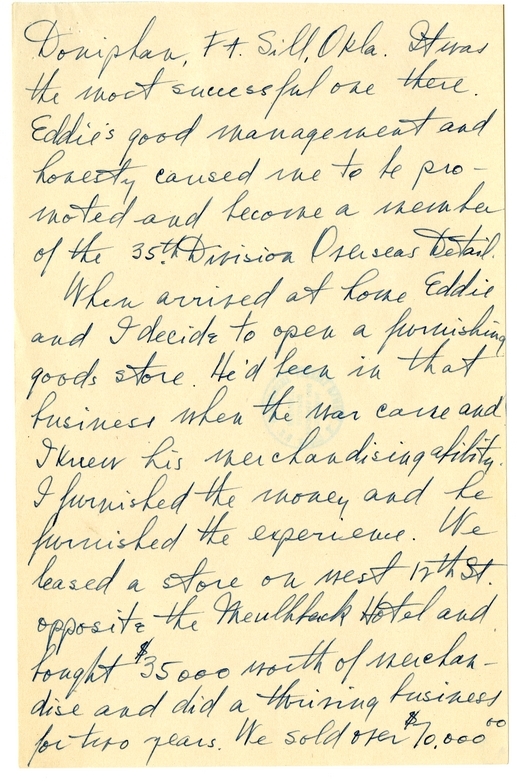 Doniphan, Ft. Sill, Okla. It was
the most successful one there.
Eddie's good management and
honesty caused me to be pro-
moted and become a member
of the 35th Division Overseas Detail.
When arrived at home Eddie
and I decide to open a furnishing
goods store. He'd been in that
business when the war came and
I knew his merchandising ability.
I furnished the money and he
furnished the experience. We
leased a store on west 12th St.
opposite the Meulhback Hotel and
bought $35000 worth of merchan-
dise and did a thriving business
for two years. We sold over $70,000 00